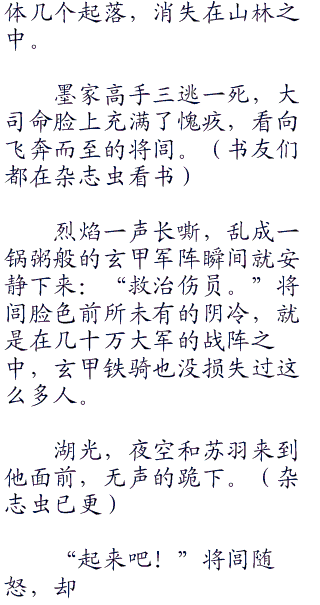 体几个起落，消失在山林之
中。
墨家高手三逃一死，大
司命脸上充满了愧疚，看向
飞奔而至的将闾。（书友们
都在杂志虫看书）
烈焰一声长嘶，乱成一
锅粥般的玄甲军阵瞬间就安
静下来：“救治伤员。”将
闾脸色前所未有的阴冷，就
是在几十万大军的战阵之
中，玄甲铁骑也没损失过这
么多人。
湖光，夜空和苏羽来到
他面前，无声的跪下。（杂
志虫已更）
“起来吧！”将闾随
怒，却